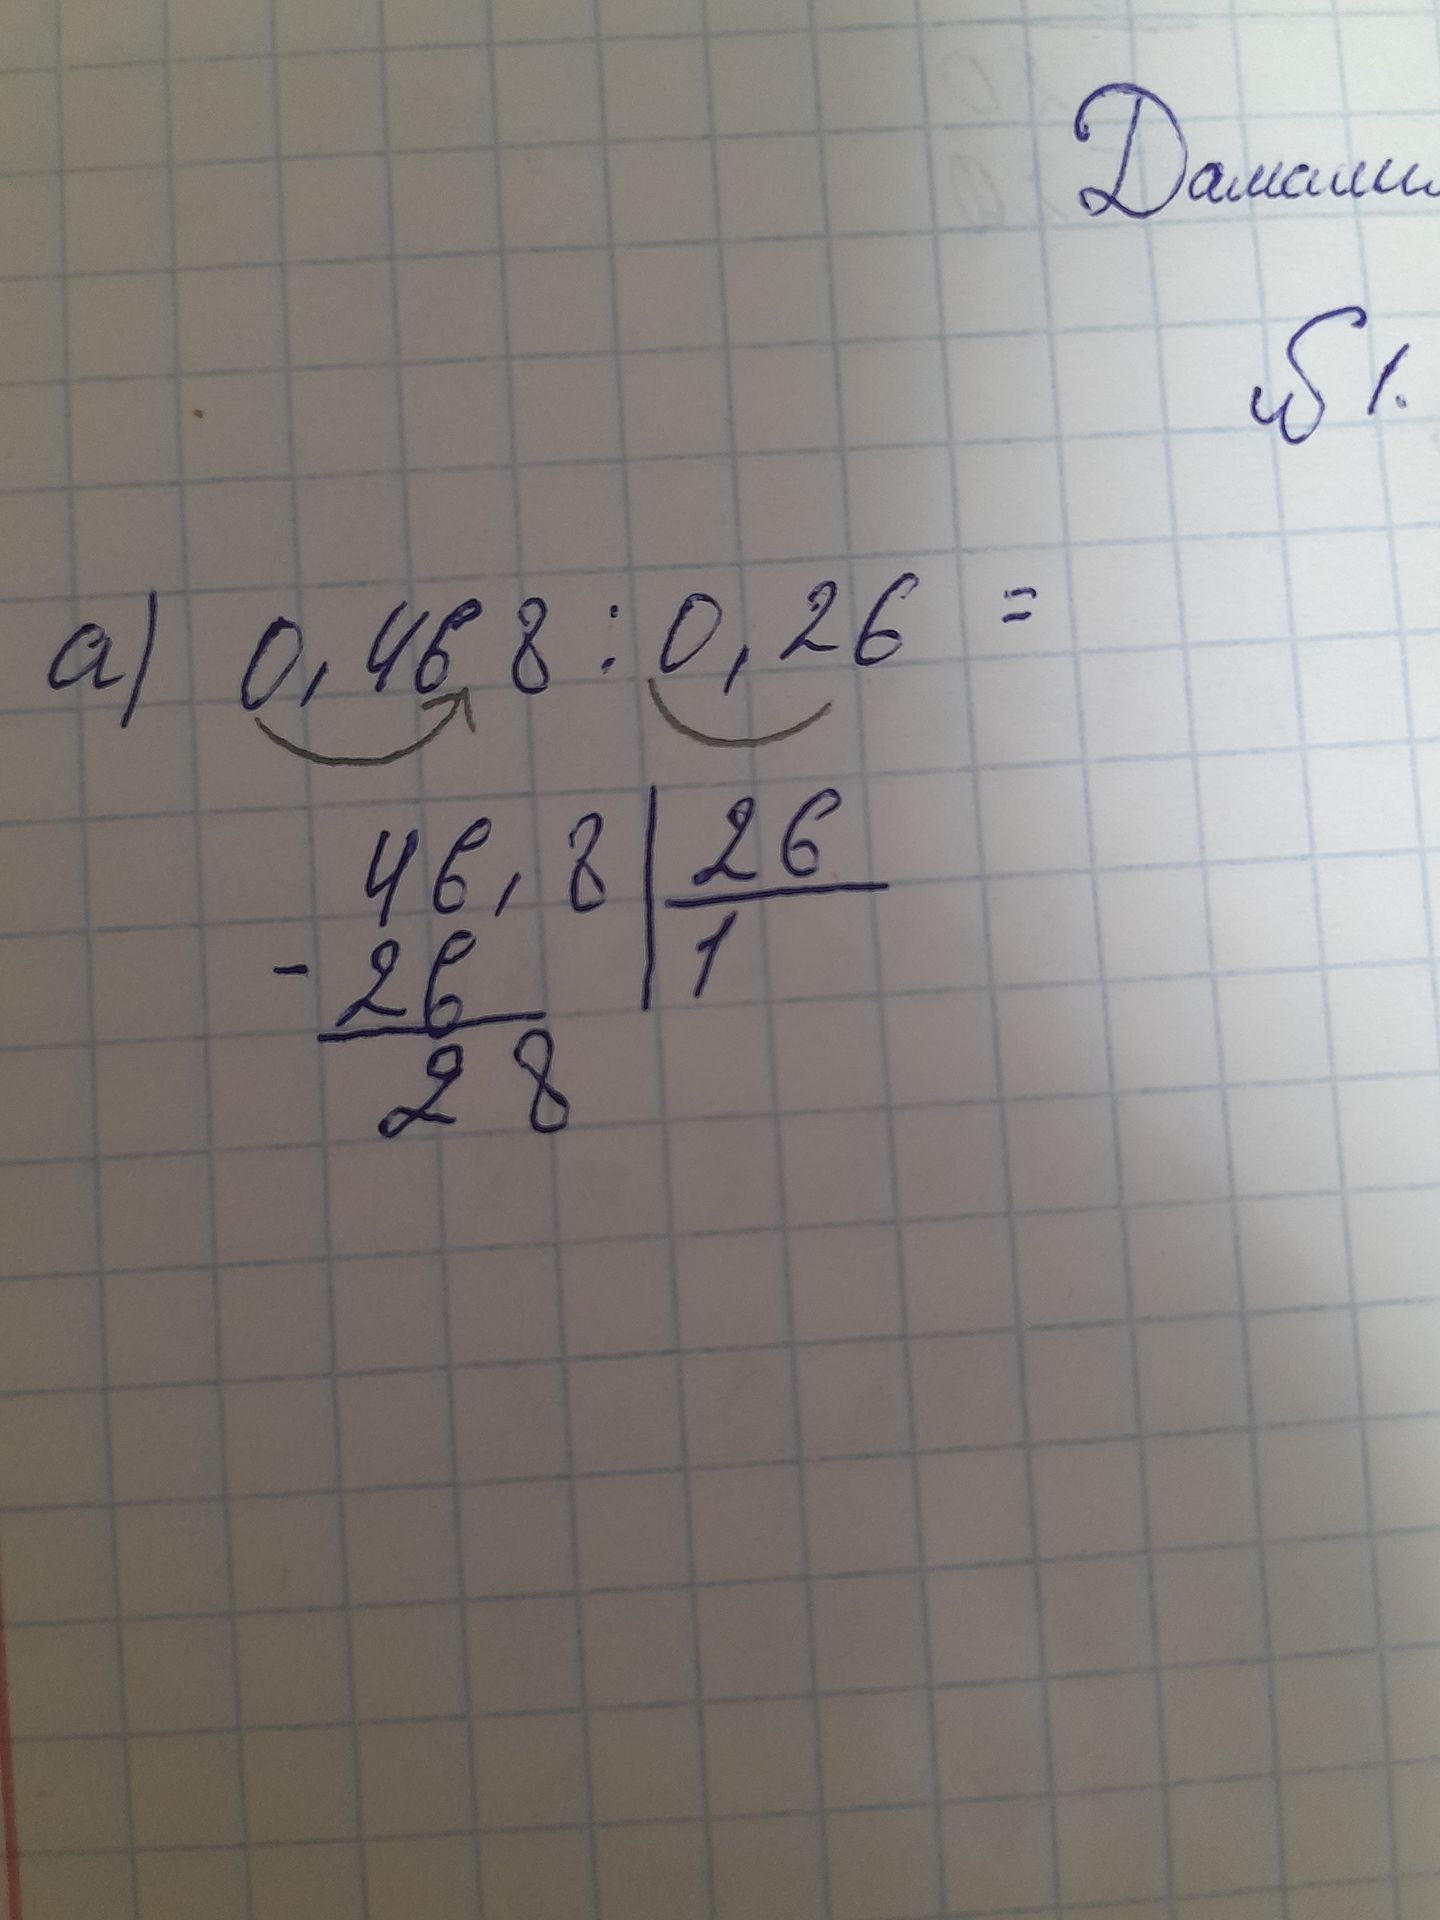 №1.
а) 0,468 : 0,26 =
46,8 | 26
- 26 | 1
28